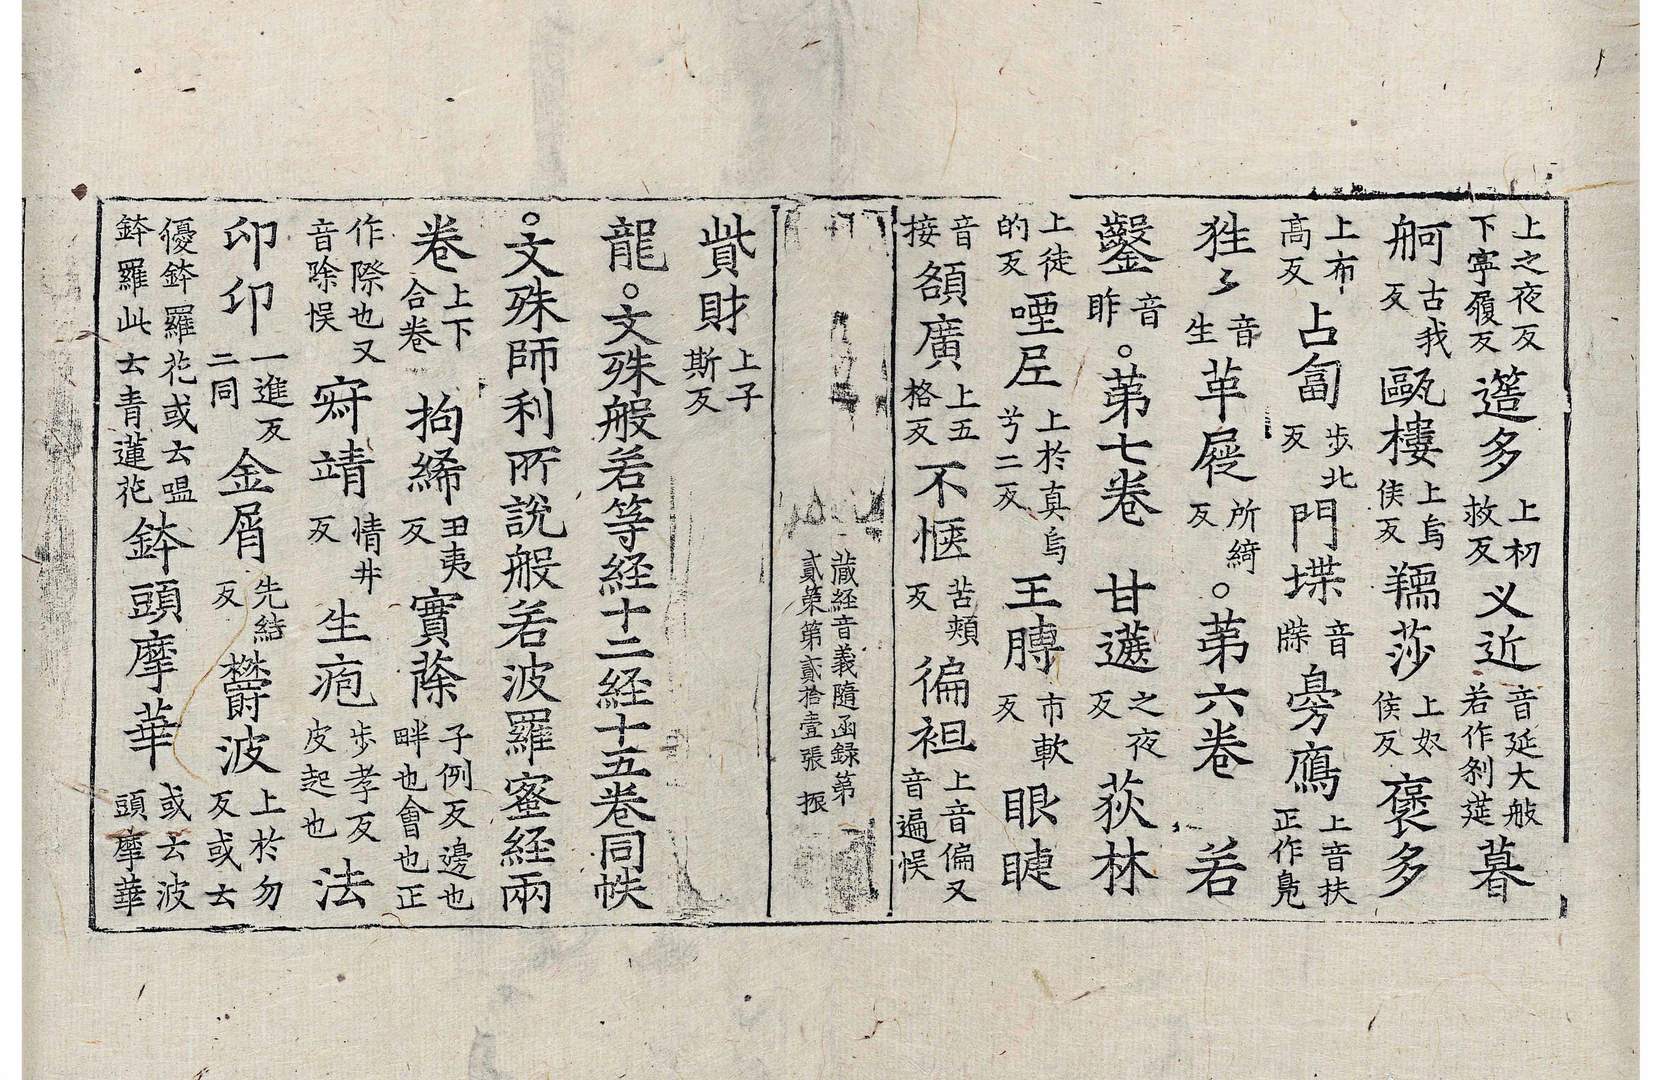 上之夜反下寧履反簉多上初救反义近音延大般若作剎莚暮
舸古我反甌樓上烏侯反羺莎上奴侯反褒多
上布高反占匐步北反門堞音牒㝑鴈上音扶正作鳧
狌〻音生革屣所綺反。苐六卷 若
鑿音昨。苐七卷 甘䗫之夜反荻林
上徒的反堙𡰱上於真烏兮二反王膊市軟反眼睫
音接額廣上五格反不愜苦頰反徧袒上音偏又音遍悮
藏経音義隨函録第貳第貳拾壹張 振
貲財上子斯反
龍。文殊般若等経十二経十五卷同帙
。文殊師利所說般若波羅蜜経兩
卷上下合卷 拘絺丑夷反實䕓子例反邊也畔也會也正
作際也又音除悮㝛靖情井反生疱步孝反皮起也法
卬卬一進反二同金屑先結反欝波上於勿反或云
優鉢羅花或云嗢鉢羅此云青蓮花鉢頭摩華或云波頭摩華